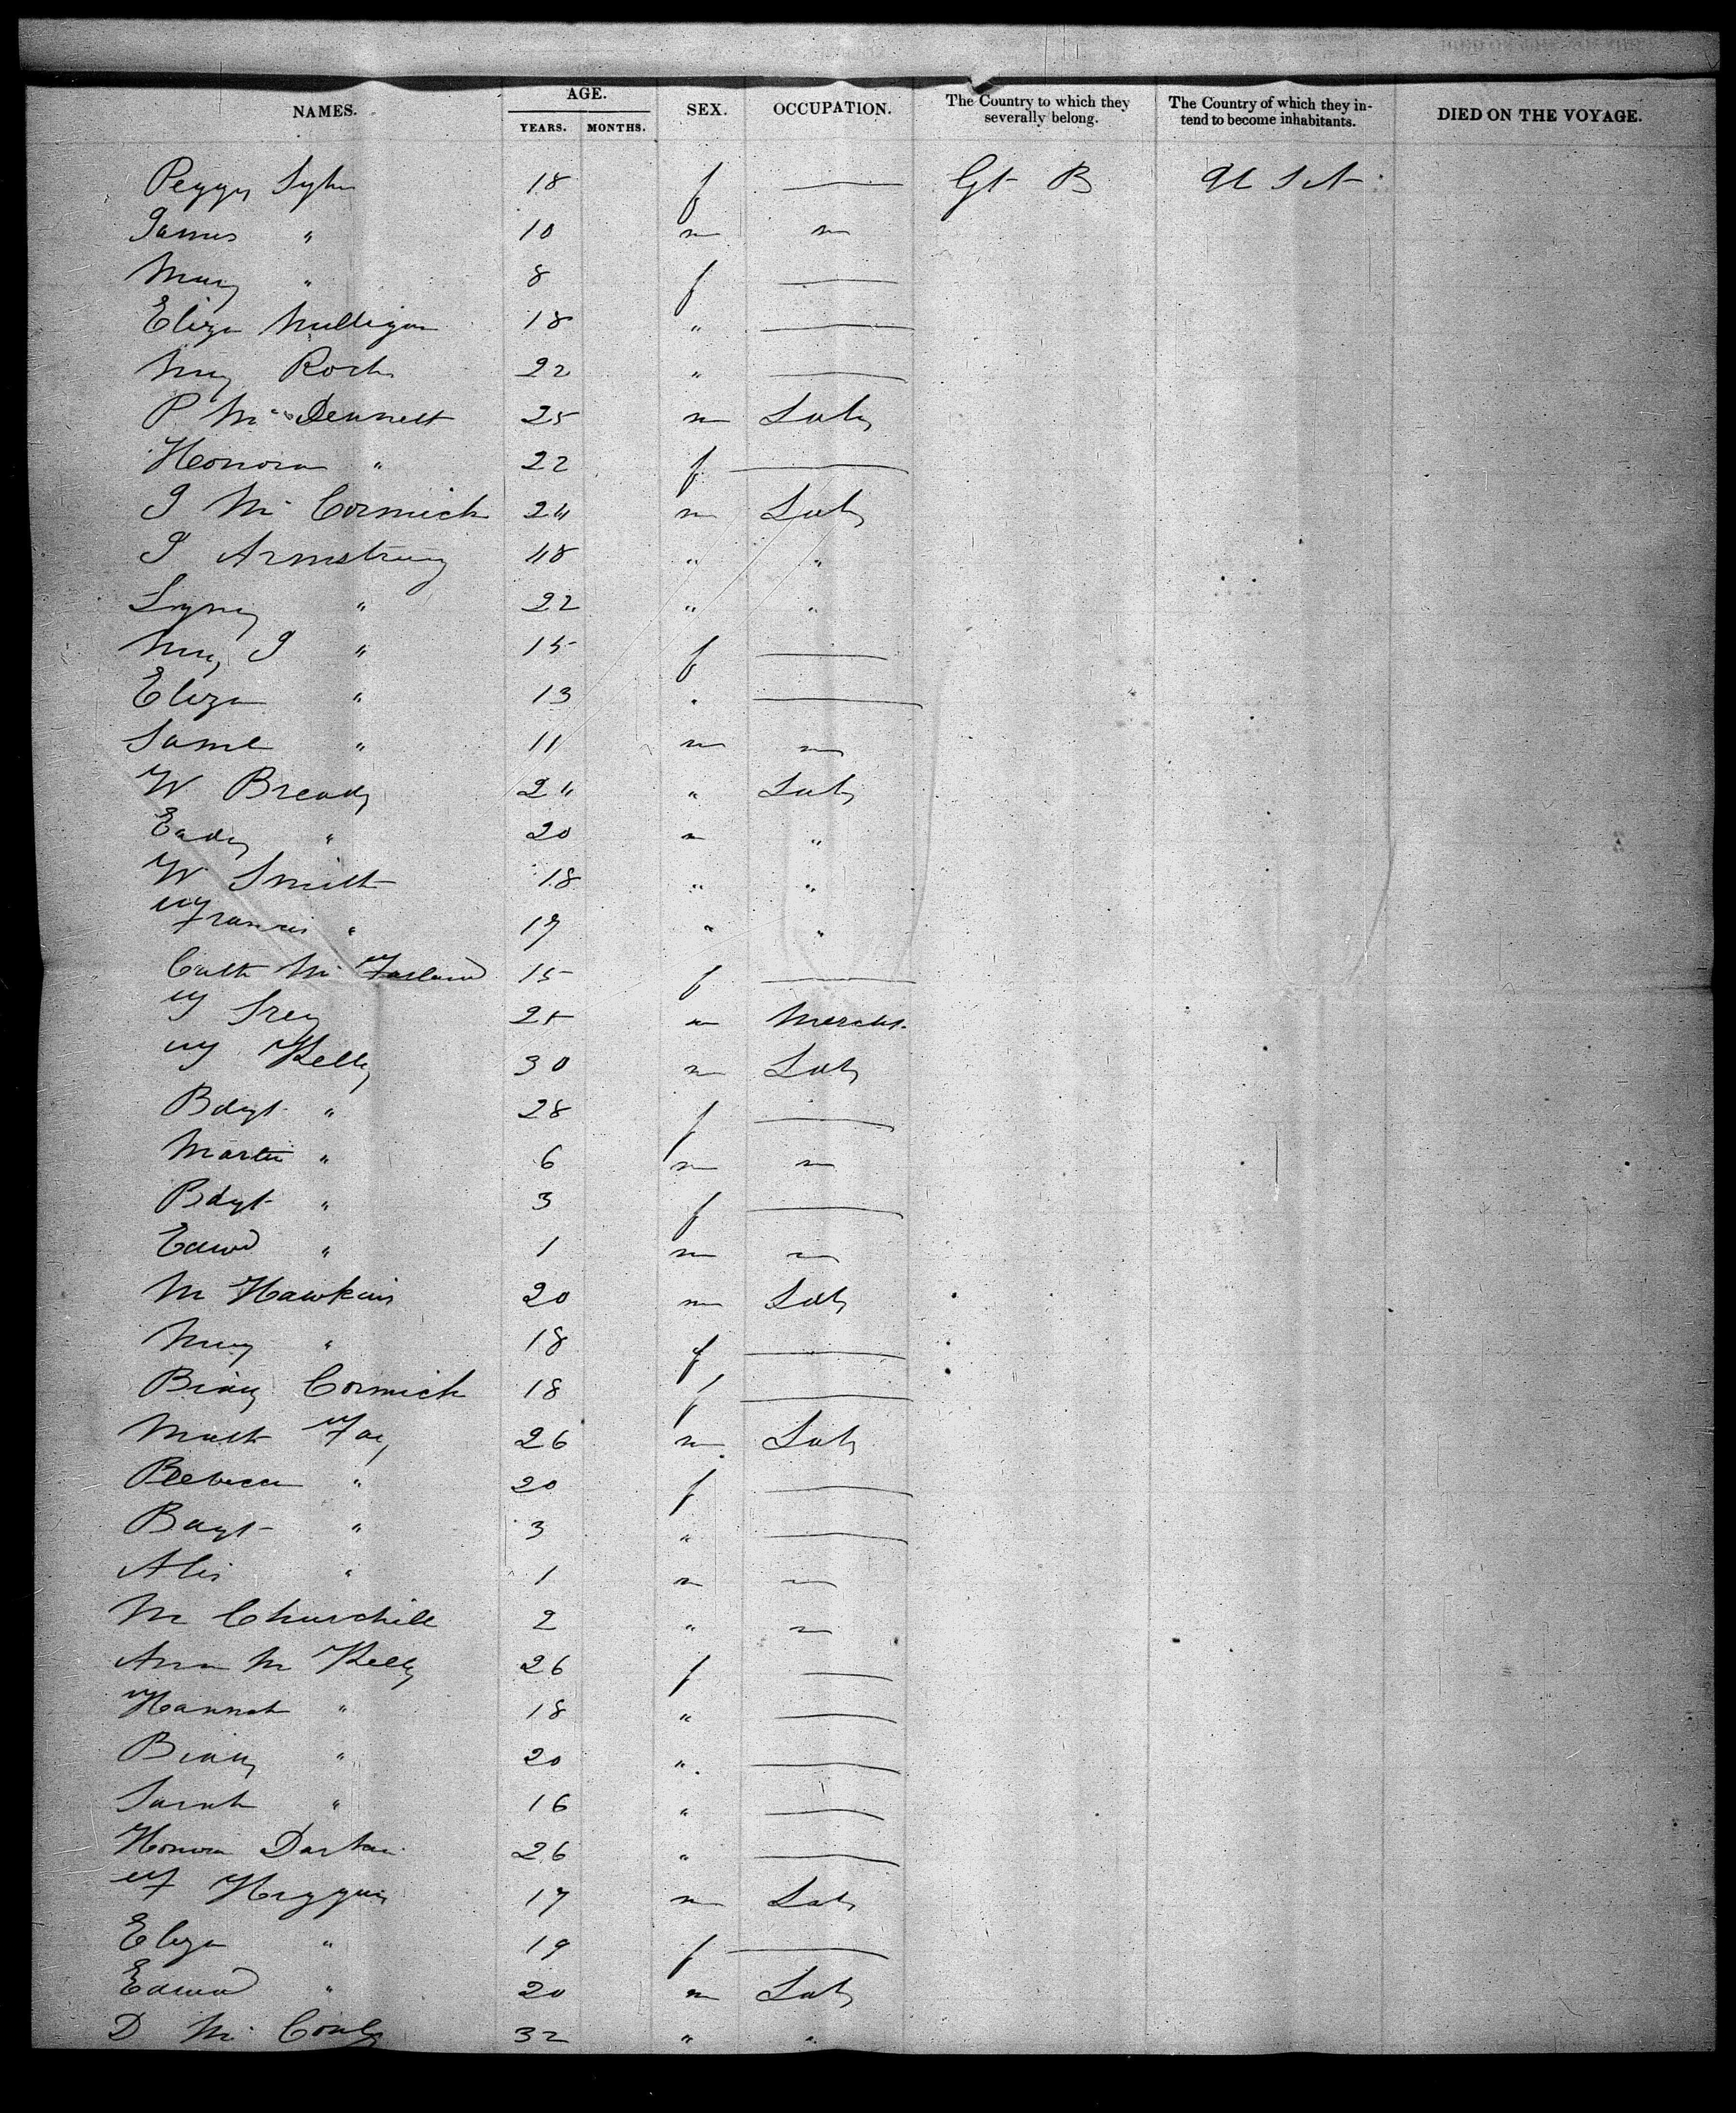 NAMES. AGE. SEX. OCCUPATION. The Country to which they severally belong. The Country of which they intend to become inhabitants. DIED ON THE VOYAGE.
YEARS. MONTHS.
Peggy 18 f — Gt B U S A
James " 10 m
Mary " 8 f —
Eliza Mulligan 18 " —
Mary 22 " —
P Mc Dennett 25 m Lab
Honora " 22 f —
J Mc Cormick 24 m Lab
J Armstrong 48 " "
" 22 " "
Mary J " 15 f —
Eliza " 13 " —
Saml " 11 m
W Bready 24 " Lab
" 20 m "
W Smith 18 " "
Francis " 17 " "
Cath Mc Farland 15 f —
25 m Mercht
Kelly 30 m Lab
Bdgt " 28 f —
Martin " 6 m
Bdgt " 3 f —
Edwd " 1 m
M Hawkins 20 m Lab
Mary " 18 f —
Cormick 18 f —
Foy 26 m Lab
Rebecca " 20 f —
" 3 " —
" 1 m
M Churchill 2 "
Ann M Kelly 26 f —
Hannah " 18 " —
" 20 " —
Sarah " 16 " —
Honora 26 " —
Higgins 17 m Lab
Eliza " 19 f —
Edwd " 20 m Lab
D Mc 32 " "